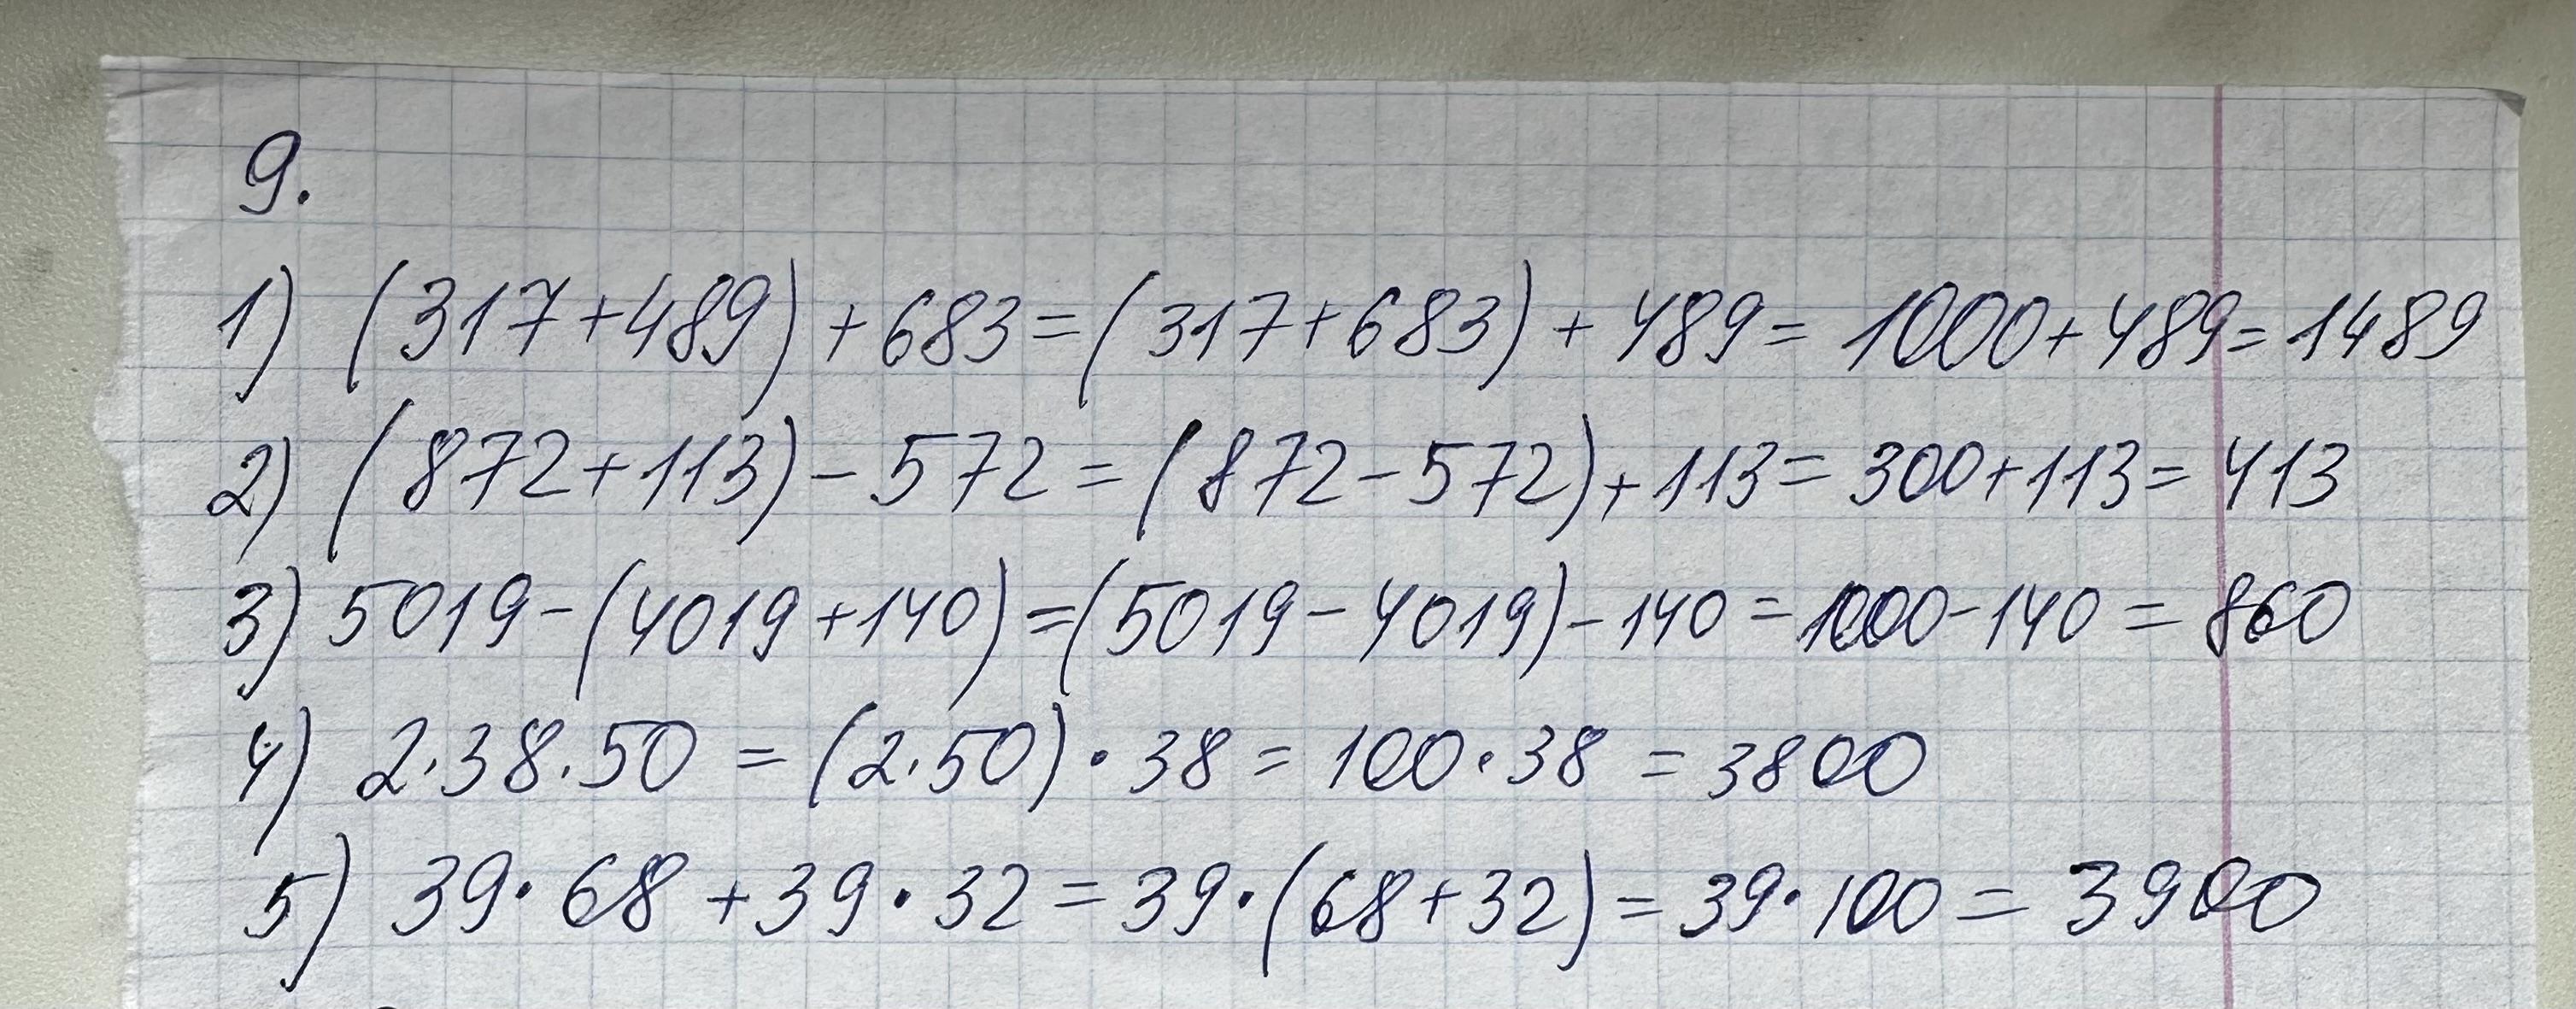 9.
1) (317+489)+683=(317+683)+489=1000+489=1489
2) (872+113)-572=(872-572)+113=300+113=413
3) 5019-(4019+140)=(5019-4019)-140=1000-140=860
4) 2·38·50=(2·50)·38=100·38=3800
5) 39·68+39·32=39·(68+32)=39·100=3900